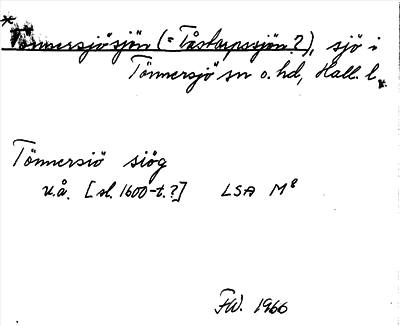 *Tönnersjösjön (= Tåstarpssjön?), sjö i
Tönnersjö sn o. hd, Hall. l.
Tönnersiö siög
u.å. [sl. 1600-t.?] LSA M⁸
FW. 1966